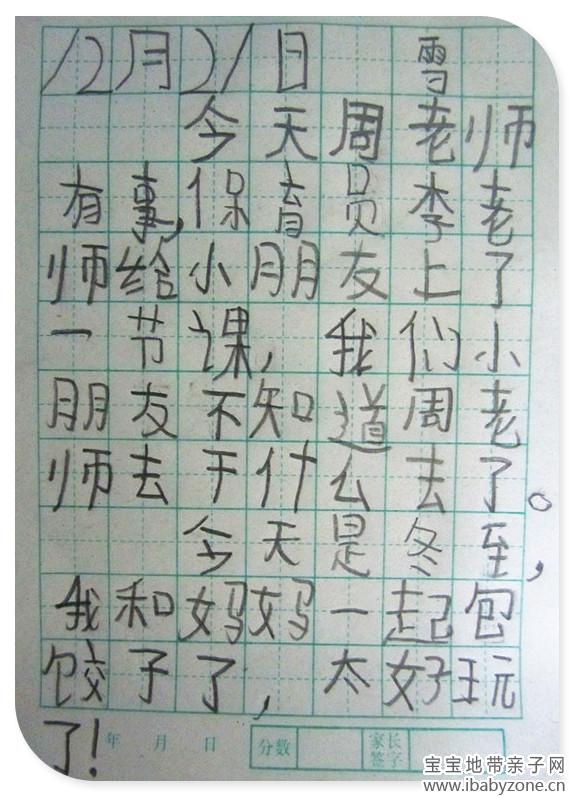 12月21日 雪
今天周老师
有事,保育员李老
师给小朋友上了
一节课,我们小
朋友不知道周老
师去干什么去了。
今天是冬至,
我和妈妈一起包
饺子了,太好玩
了!
年 月 日 分数 家长签字
宝宝地带亲子网
www.ibabyzone.cn